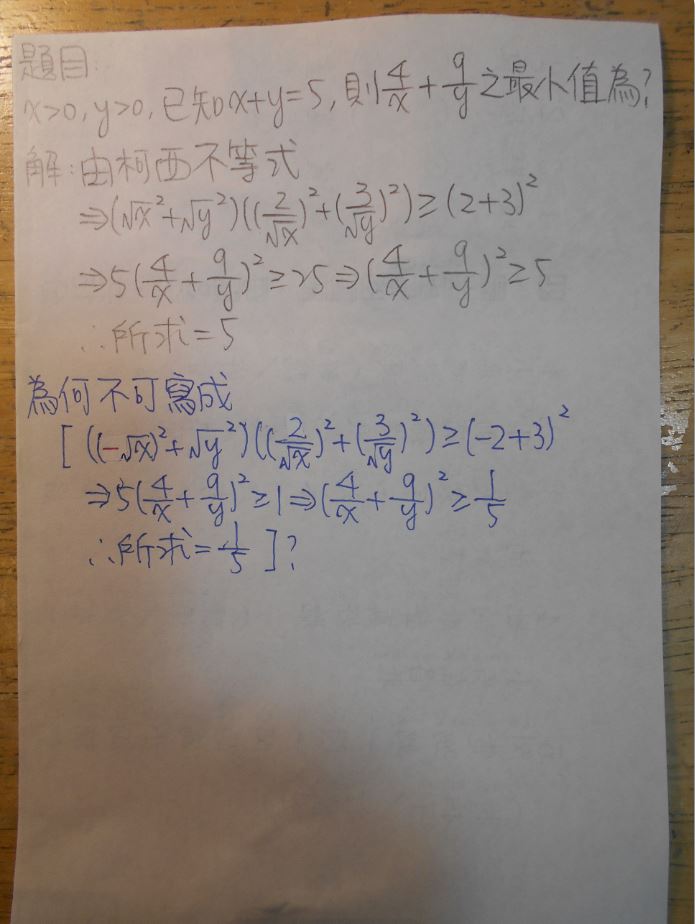 題目:
x>0, y>0, 已知x+y=5, 則4/x + 9/y 之最小值為?
解:由柯西不等式
⇒(√x²+√y²)((2/√x)²+(3/√y)²)≥(2+3)²
⇒5(4/x + 9/y)²≥25⇒(4/x + 9/y)²≥5
∴所求=5
為何不可寫成
[ ((-√x)²+√y²)((2/√x)²+(3/√y)²)≥(-2+3)²
⇒5(4/x + 9/y)²≥1⇒(4/x + 9/y)²≥1/5
∴所求=1/5 ]?